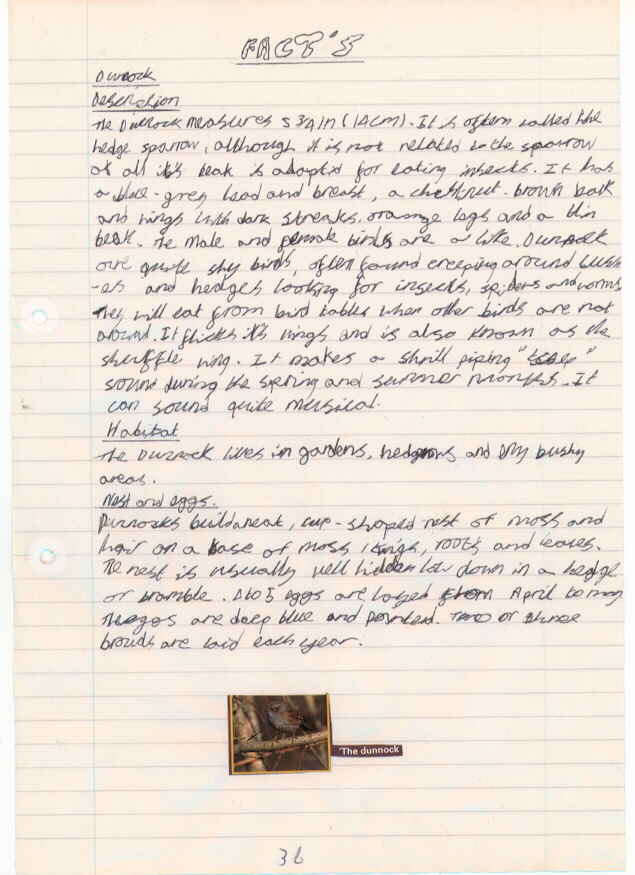 FACT'S
Dunnock
Description
The Dunnock measures 5 3/4in (14cm). It is often called the
hedge sparrow, although it is not related to the sparrow
at all it's beak is adapted for eating insects. It has
a blue-grey head and breast, a chestnut-brown back
and wings with dark streaks, orange legs and a thin
beak. The male and female birds are a like. Dunnock
are quite shy birds, often found creeping around bush
-es and hedges looking for insects, spiders and worms
They will eat from bird tables when other birds are not
around. It flicks it's wings and is also known as the
shuffle wing. It makes a shrill piping " "
sound during the spring and summer months. It
can sound quite musical.
Habitat
The Dunnock lives in gardens, hedgerows and dry bushy
areas.
Nest and eggs.
Dunnocks build a neat, cup-shaped nest of moss and
hair on a base of moss, twigs, roots and leaves.
The nest is usually well hidden low down in a hedge
or bramble. 4 to 5 eggs are layed from April to may
The eggs are deep blue and pointed. Two or three
broods are laid each year.
'The dunnock
36